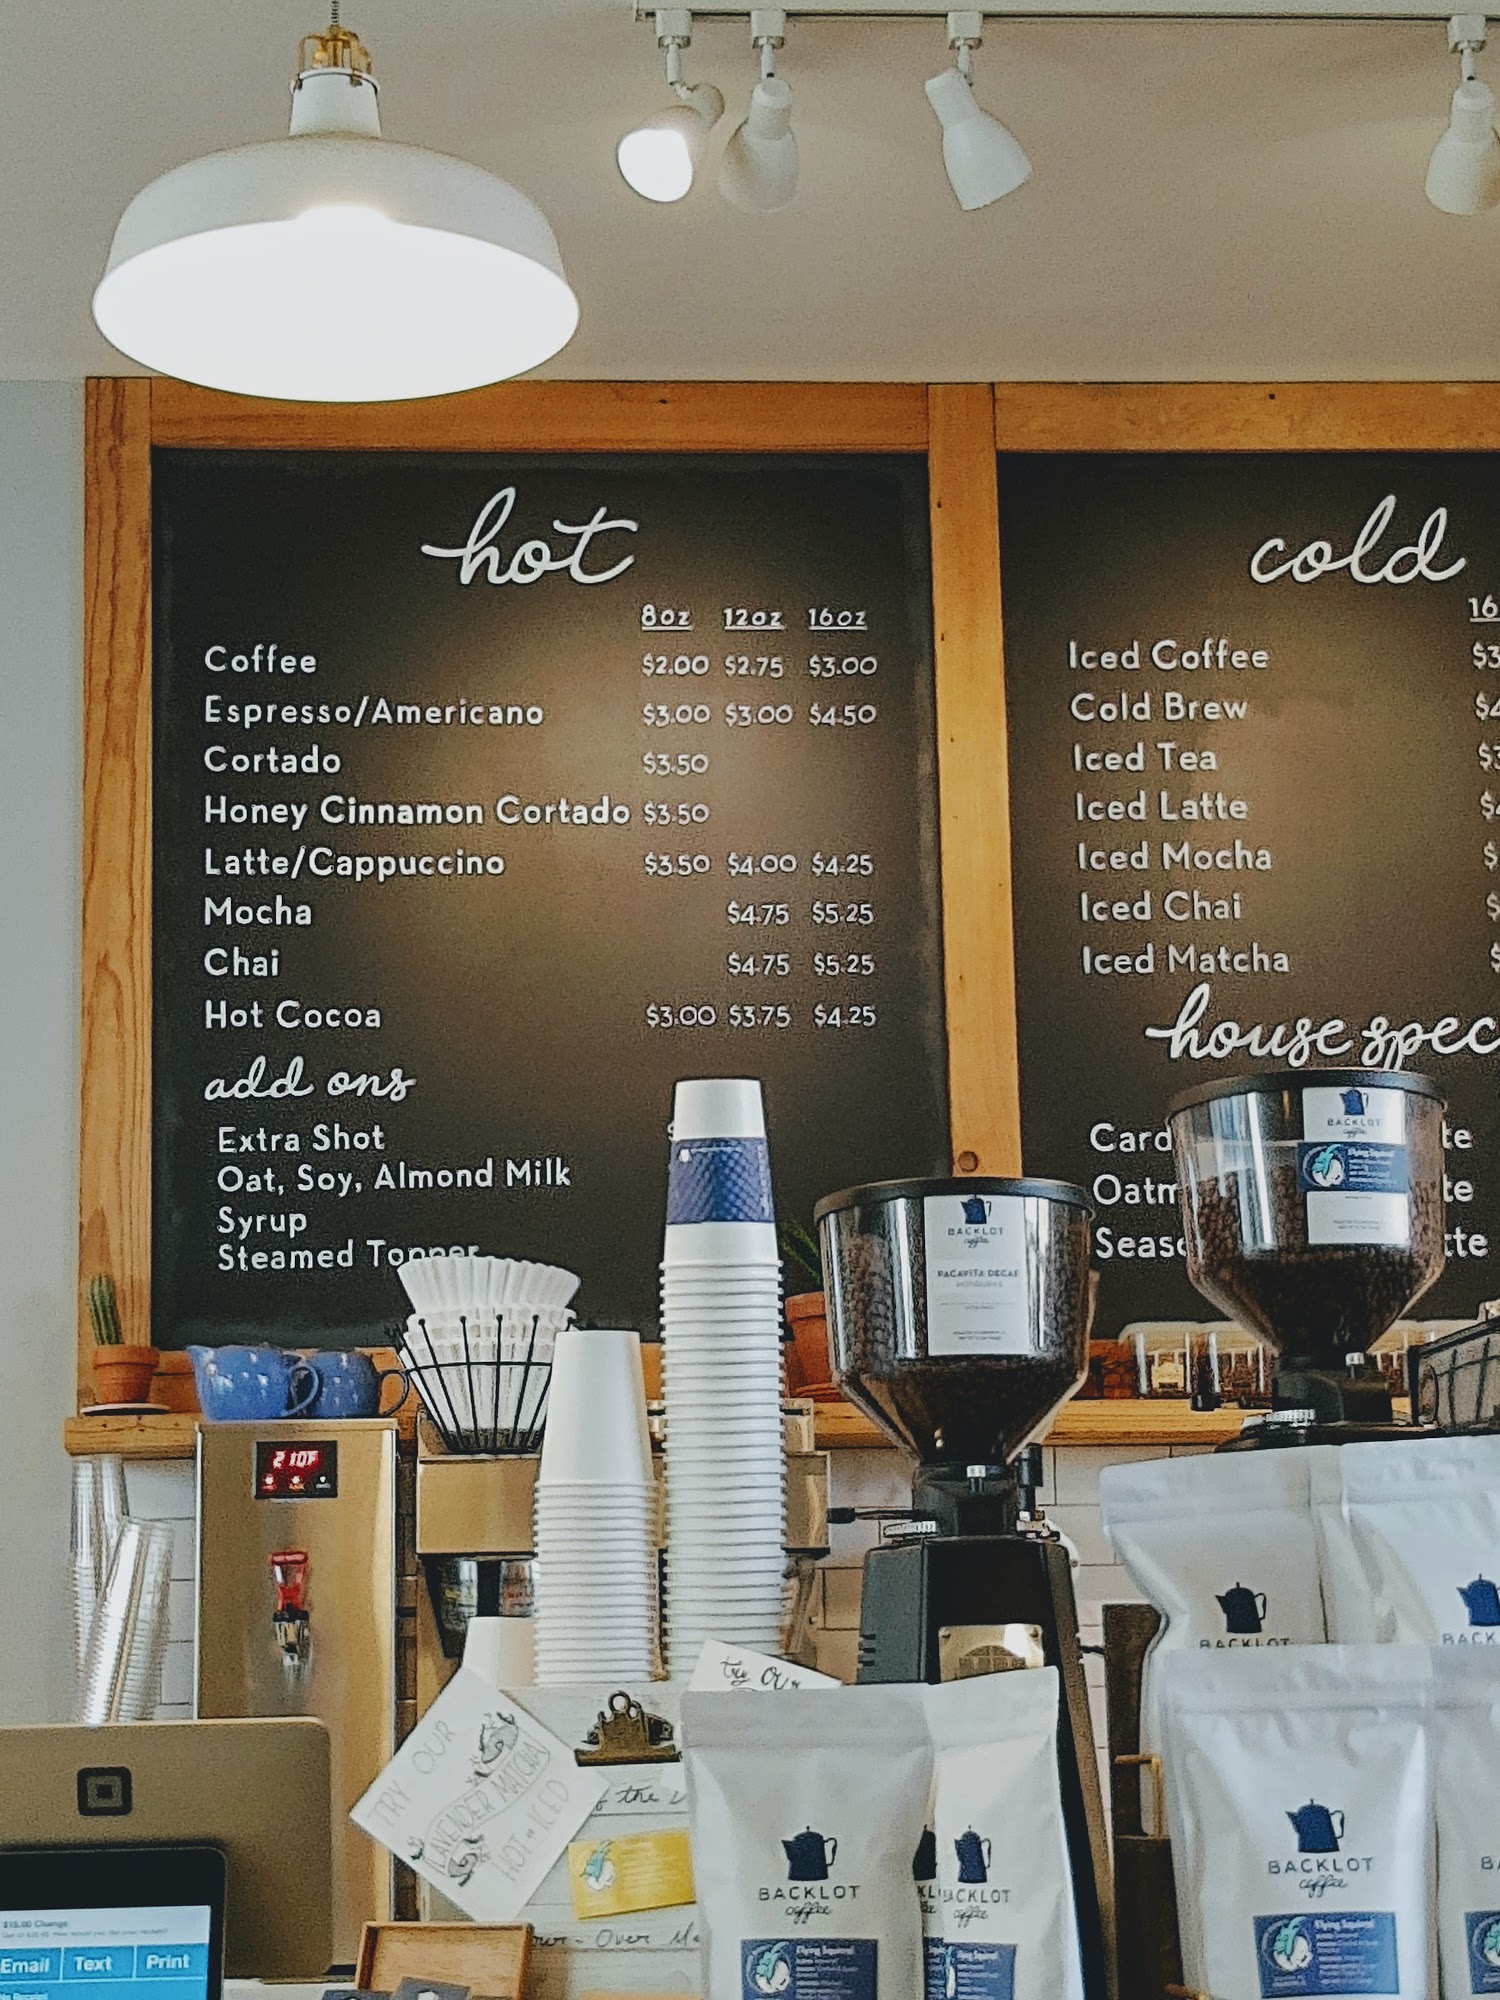 hot
8oz 12oz 16oz
Coffee $2.00 $2.75 $3.00
Espresso/Americano $3.00 $3.00 $4.50
Cortado $3.50
Honey Cinnamon Cortado $3.50
Latte/Cappuccino $3.50 $4.00 $4.25
Mocha $4.75 $5.25
Chai $4.75 $5.25
Hot Cocoa $3.00 $3.75 $4.25
add ons
Extra Shot
Oat, Soy, Almond Milk
Syrup
Steamed Topper
cold
16
Iced Coffee $3
Cold Brew $4
Iced Tea $3
Iced Latte $4
Iced Mocha $
Iced Chai $
Iced Matcha $
house spec
Card te
Oatm te
Seas tte
BACKLOT
coffee
Flying Squirrel
BACKLOT
coffee
PACAVITA DECAF
HONDURAS
210F
TRY OUR
LAVENDER MATCHA
HOT or ICED
Try Our
of the
Pour-Over
BACKLOT
BACK
BACKLOT
coffee
Flying Squirrel
BACKLOT
coffee
BACKLOT
coffee
Flying Squirrel
$15.00 Change
Email Text Print
No Receipt